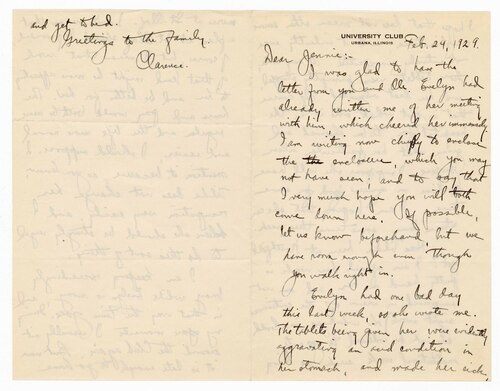 and get to bed.
Greetings to the family.
Clarence.
UNIVERSITY CLUB
URBANA, ILLINOIS
Feb. 24, 1929.
Dear Jennie:-
I was glad to have the
letter from you and Ola. Evelyn had
already written me of her meeting
with him, which cheered her immensely.
I am writing now chiefly to enclose
the the enclosure, which you may
not have seen; and to say that
I very much hope you will both
come down here. If possible,
let us know beforehand, but we
have room enough even though
you walk right in.
Evelyn had one bad day
this last week, as she wrote me.
The tablets being given her were evidently
aggravating an acid condition in
her stomach, and made her sick,